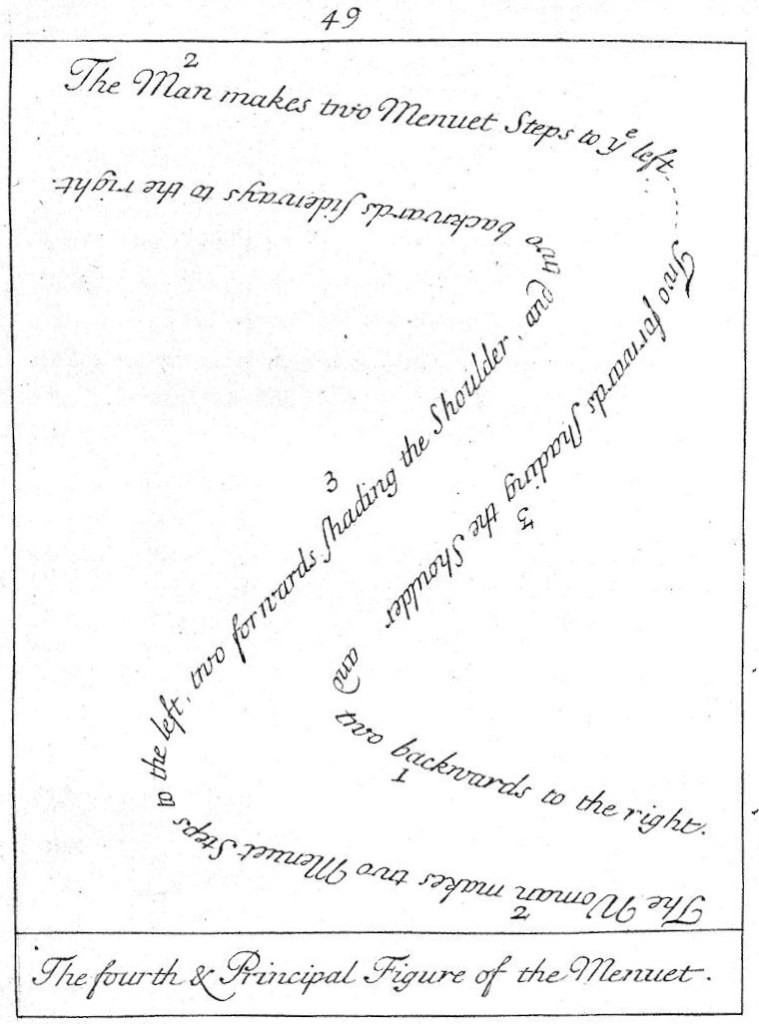 49
2
The Man makes two Menuet Steps to yͤ left
Two forwards ſhading the Shoulder
3
and
two backwards to the right.
1
The Woman makes two Menuet Steps
2
to the left, two forwards ſhading the Shoulder,
3
and two backwards ſideways to the right.
The fourth & Principal Figure of the Menuet.